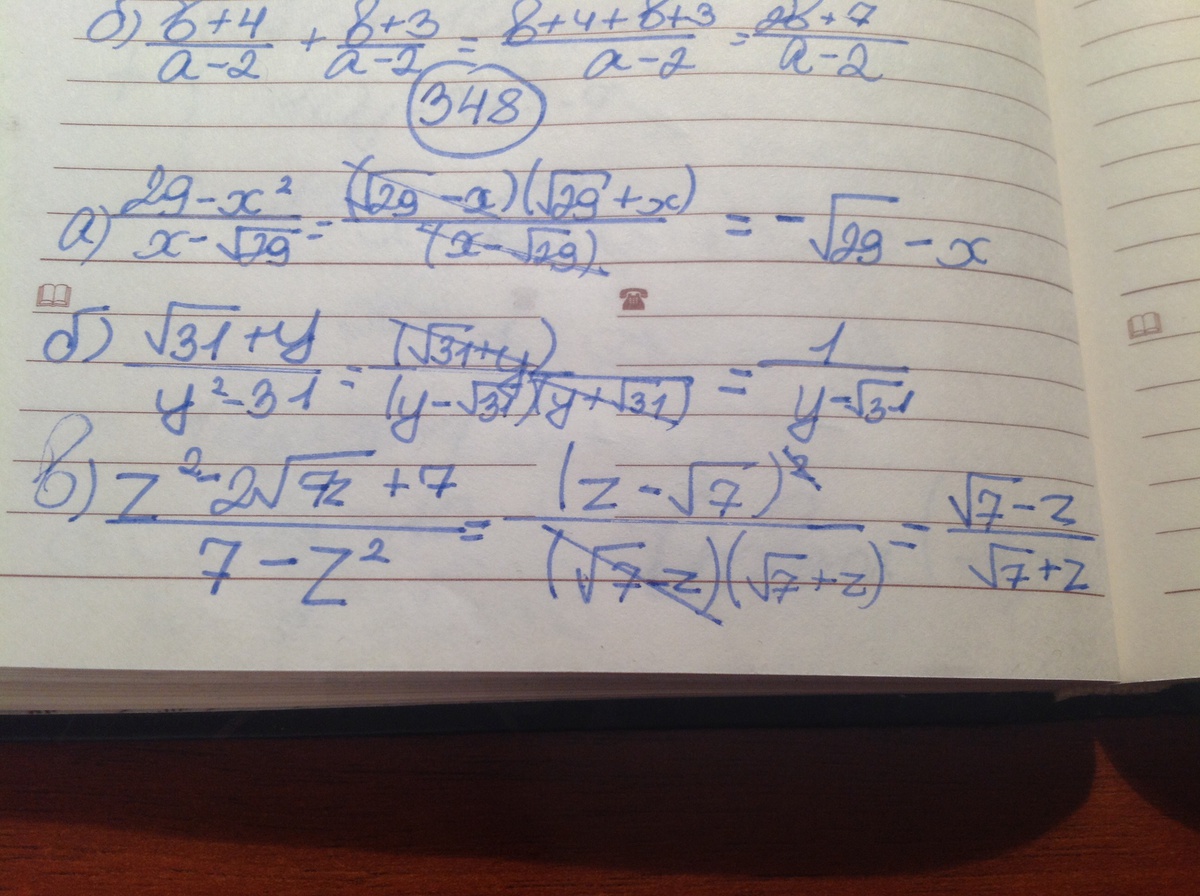 б) (b+4)/(a-2) + (b+3)/(a-2) = (b+4+b+3)/(a-2) = (2b+7)/(a-2)
348
а) (29-x²)/(x-√29) = ((√29-x)(√29+x))/((x-√29)) = -√29-x
б) (√31+y)/(y²-31) = ((√31+y))/((y-√31)(y+√31)) = 1/(y-√31)
в) (z²-2√7z+7)/(7-z²) = (z-√7)²/((√7-z)(√7+z)) = (√7-z)/(√7+z)